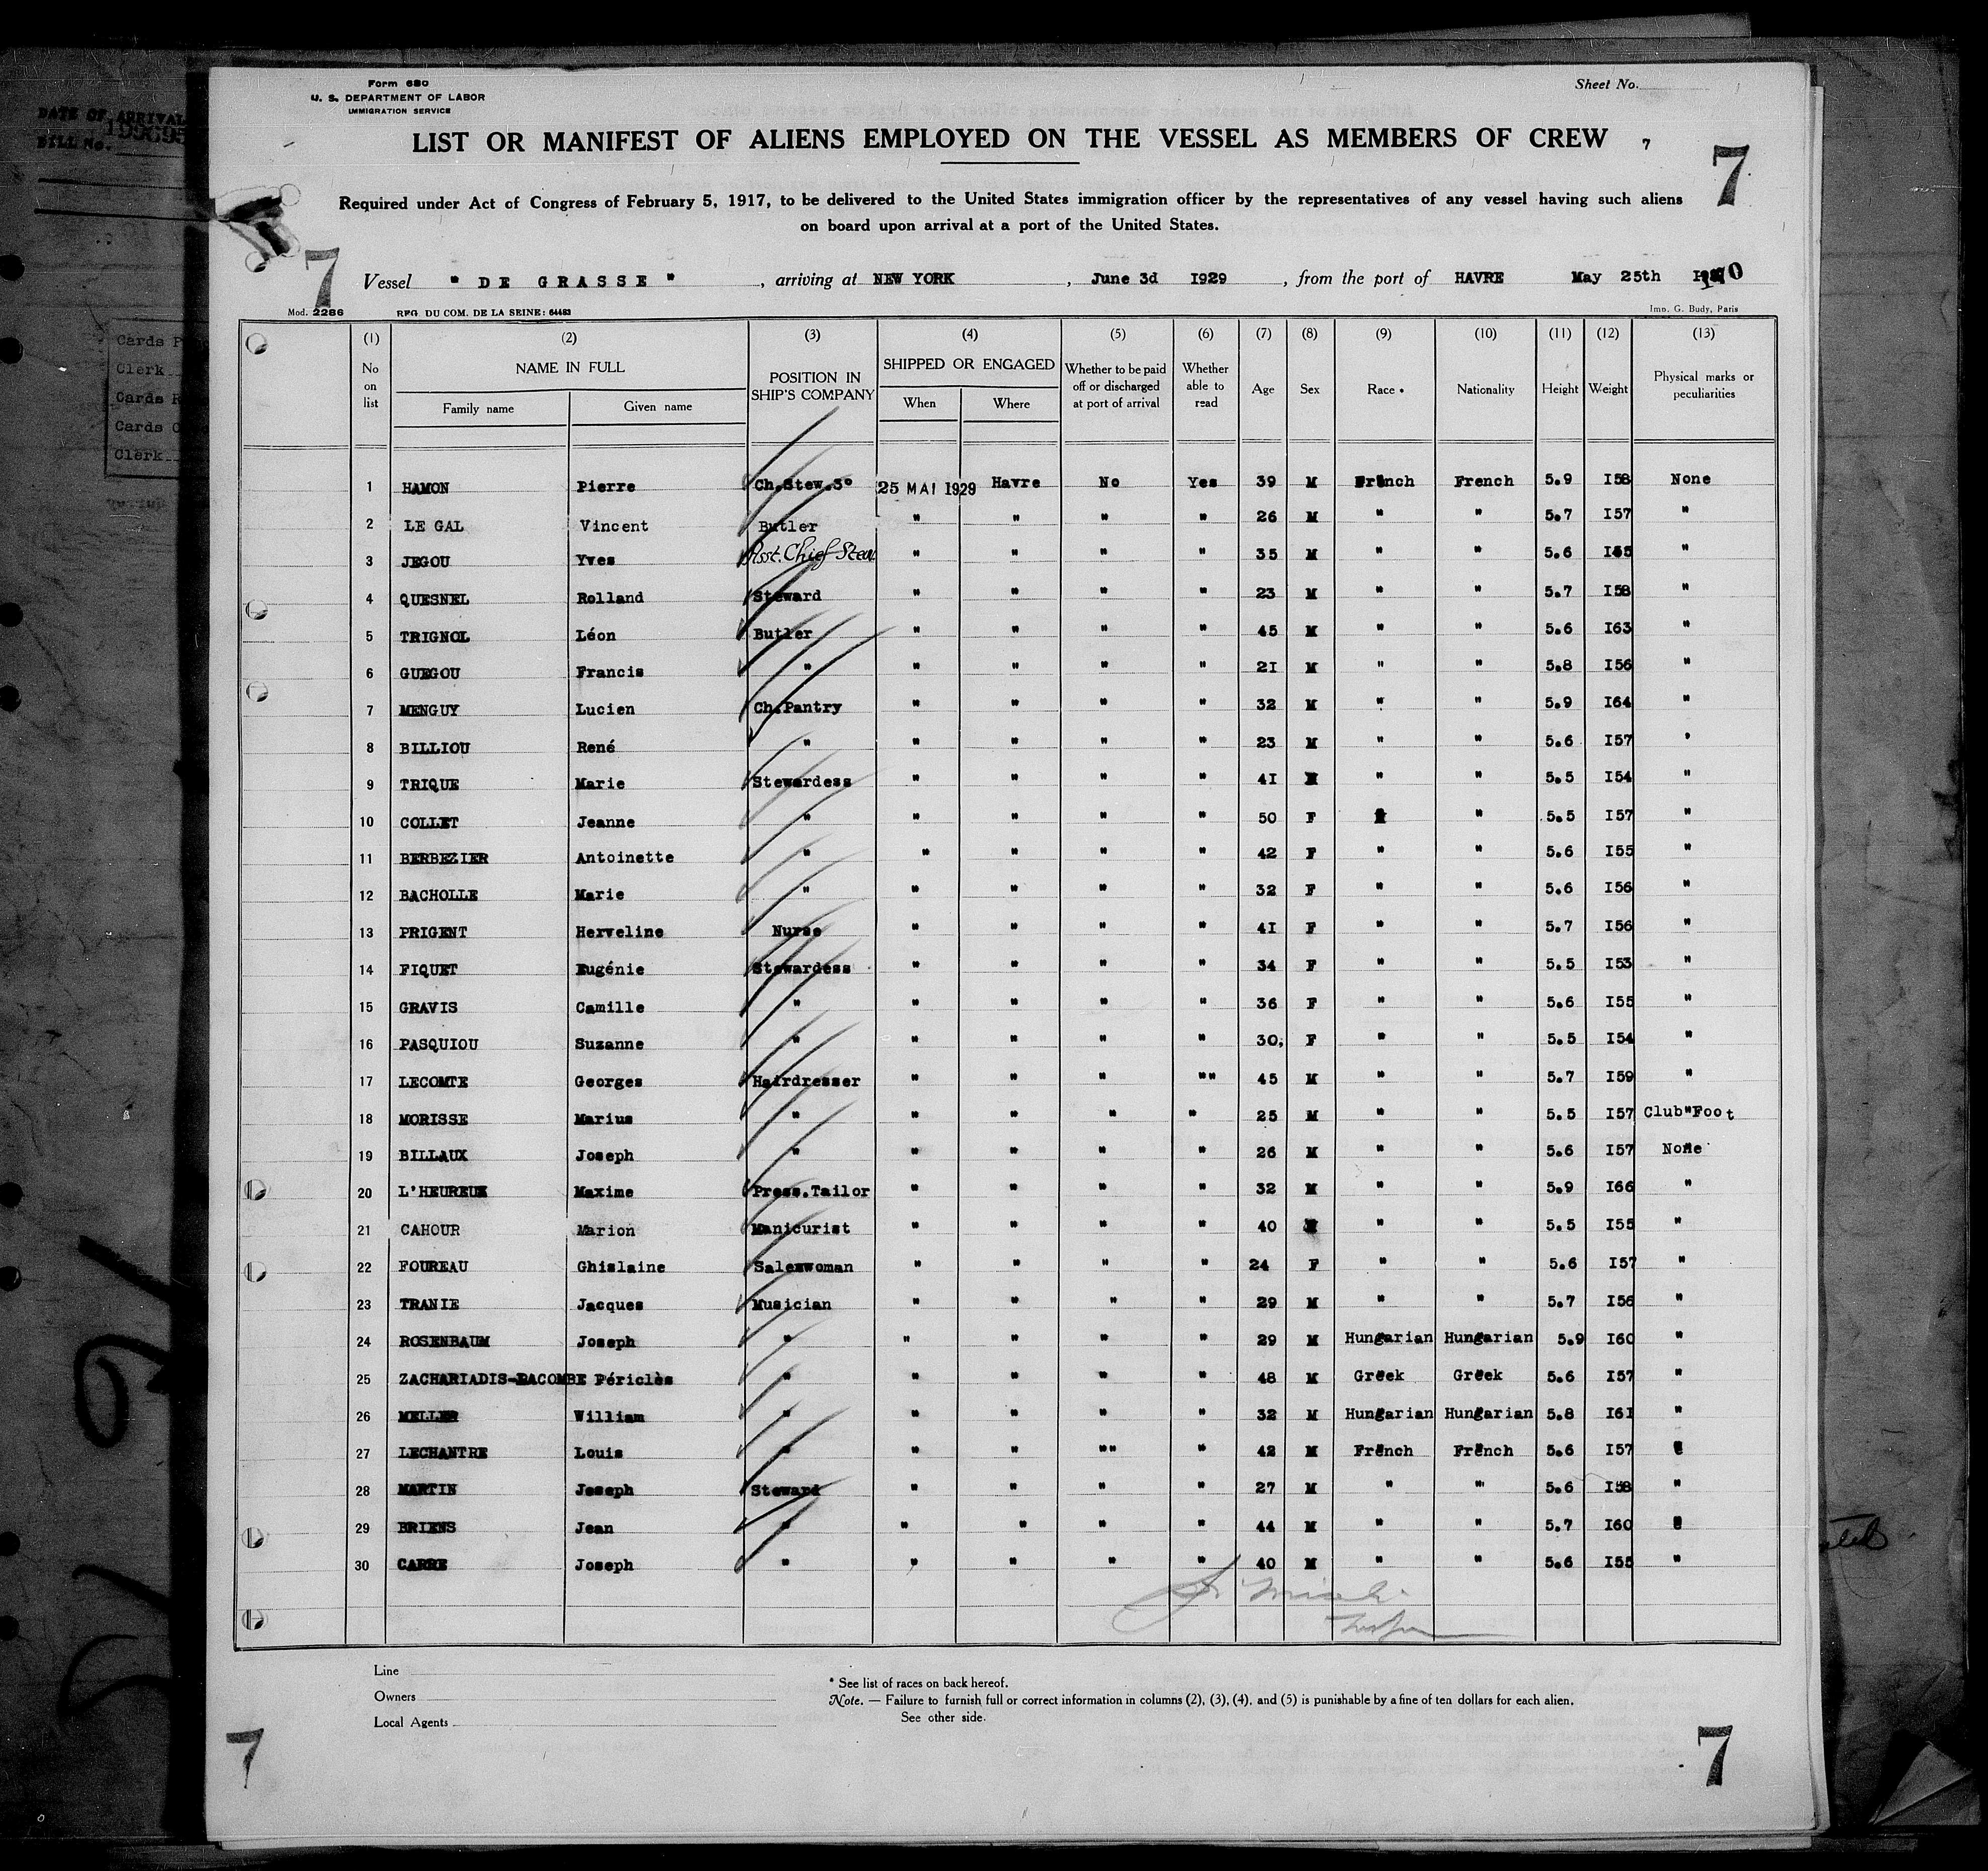 Form 680
U. S. DEPARTMENT OF LABOR
IMMIGRATION SERVICE
Sheet No.
DATE OF ARRIVAL
BILL No.
LIST OR MANIFEST OF ALIENS EMPLOYED ON THE VESSEL AS MEMBERS OF CREW 7
7
Required under Act of Congress of February 5, 1917, to be delivered to the United States immigration officer by the representatives of any vessel having such aliens
on board upon arrival at a port of the United States.
7
Vessel " DE GRASSE " , arriving at NEW YORK , June 3d 1929 , from the port of HAVRE May 25th
Mod. 2286 REG. DU COM. DE LA SEINE: 64483 Imp. G. Budy, Paris
Cards
Clerk
Cards
Cards
Clerk
(1) (2) (3) (4) (5) (6) (7) (8) (9) (10) (11) (12) (13)
No on list NAME IN FULL Family name Given name POSITION IN SHIP'S COMPANY SHIPPED OR ENGAGED When Where Whether to be paid off or discharged at port of arrival Whether able to read Age Sex Race * Nationality Height Weight Physical marks or peculiarities
1 HAMON Pierre Ch.Stew.3° 25 MAI 1929 Havre No Yes 39 M French French 5.9 I58 None
2 LE GAL Vincent Butler " " " " 26 M " " 5.7 I57 "
3 JEGOU Yves Asst. Chief Stew " " " " 35 M " " 5.6 "
4 QUESNEL Rolland Steward " " " " 23 M " " 5.7 I58 "
5 TRIGNOL Léon Butler " " " " 45 M " " 5.6 I63 "
6 GUEGOU Francis " " " " " 2I M " " 5.8 I56 "
7 MENGUY Lucien Ch.Pantry " " " " 32 M " " 5.9 I64 "
8 BILLIOU René " " " " " 23 M " " 5.6 I57 "
9 TRIQUE Marie Stewardess " " " " 4I " " 5.5 I54 "
10 COLLET Jeanne " " " " " 50 F " 5.5 I57 "
11 BERBEZIER Antoinette " " " " " 42 F " " 5.6 I55 "
12 BACHOLLE Marie " " " " " 32 F " " 5.6 I56 "
13 PRIGENT Herveline Nurse " " " " 4I F " " 5.7 I56 "
14 FIQUET Eugénie Stewardess " " " " 34 F " " 5.5 I53 "
15 GRAVIS Camille " " " " " 36 F " " 5.6 I55 "
16 PASQUIOU Suzanne " " " " " 30, F " " 5.5 I54 "
17 LECOMTE Georges Hairdresser " " " "" 45 M " " 5.7 I59 "
18 MORISSE Marius " " " " " 25 M " " 5.5 I57 Club"Foot
19 BILLAUX Joseph " " " " " 26 M " " 5.6 I57 None
20 L'HEUREUX Maxime Press.Tailor " " " " 32 M " " 5.9 I66 "
21 CAHOUR Marion Manicurist " " " " 40 " " 5.5 I55 "
22 FOUREAU Ghislaine Saleswoman " " " " 24 F " " 5.6 I57 "
23 TRANIE Jacques Musician " " " " 29 M " " 5.7 I56 "
24 ROSENBAUM Joseph " " " " " 29 M Hungarian Hungarian 5.9 I60 "
25 ZACHARIADIS-BACOMBE Périclès " " " " " 48 M Greek Greek 5.6 I57 "
26 MELLER William " " " " " 32 M Hungarian Hungarian 5.8 I6I "
27 LECHANTRE Louis " " " "" " 42 M French French 5.6 I57
28 MARTIN Joseph Steward " " " " 27 M " " 5.6 I58 "
29 BRIENS Jean " " " " " 44 M " " 5.7 I60
30 CARRE Joseph " " " " " 40 M " " 5.6 I55 "
Line
Owners
Local Agents
* See list of races on back hereof.
Note. — Failure to furnish full or correct information in columns (2), (3), (4), and (5) is punishable by a fine of ten dollars for each alien.
See other side.
7
7